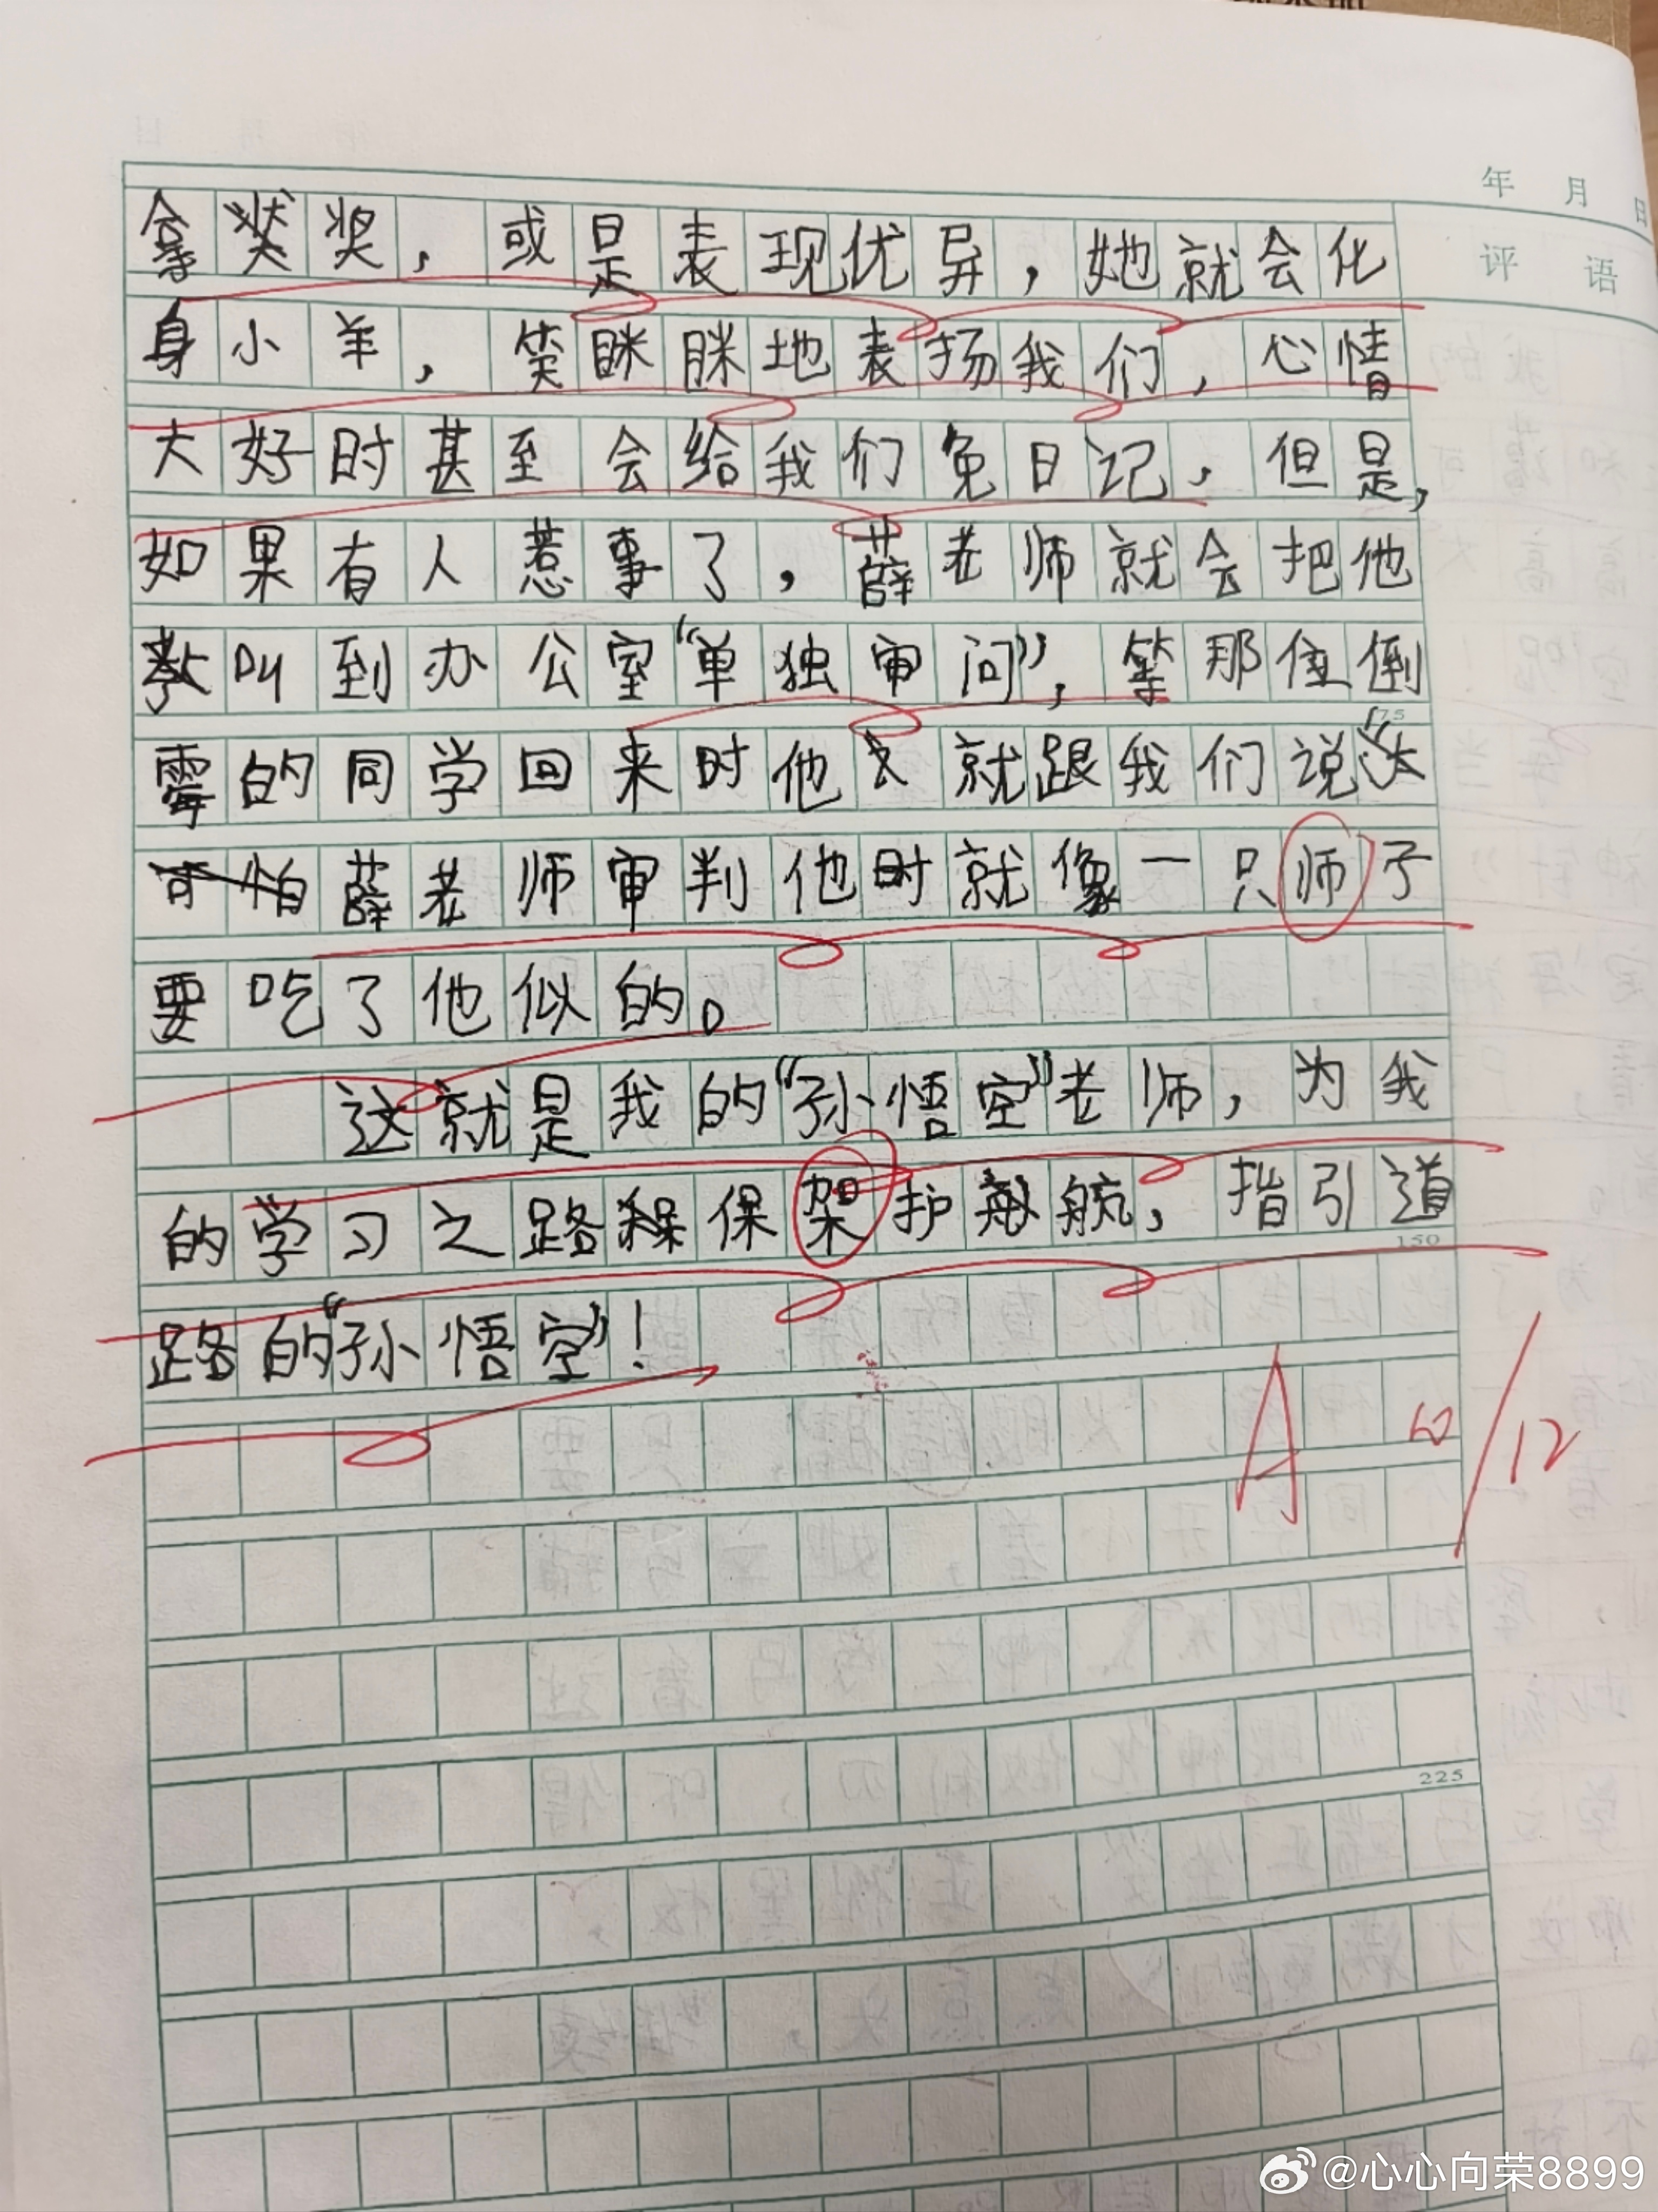 年 月 日
评 语
拿奖奖，或是表现优异，她就会化
身小羊，笑眯眯地表扬我们，心情
大好时甚至会给我们免日记，但是，
如果有人惹事了，薛老师就会把他
叫到办公室“单独审问”，等那位倒
75
霉的同学回来时他就跟我们说“太
可怕薛老师审判他时就像一只师子
要吃了他似的。
这就是我的“孙悟空”老师，为我
的学习之路保架护航，指引道
150
路的“孙悟空”！
A
/12
225
@心心向荣8899